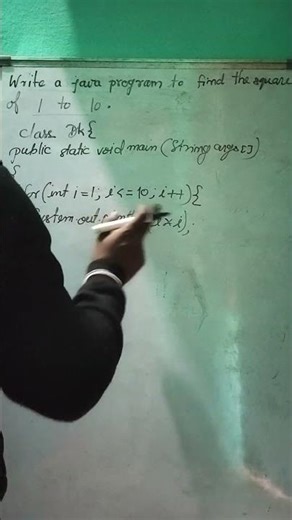 Write a java program to find the square
of 1 to 10.
class Bk{
public static void main (String args[])
{
for (int i=1; i<=10; i++){
System.out. i*i);